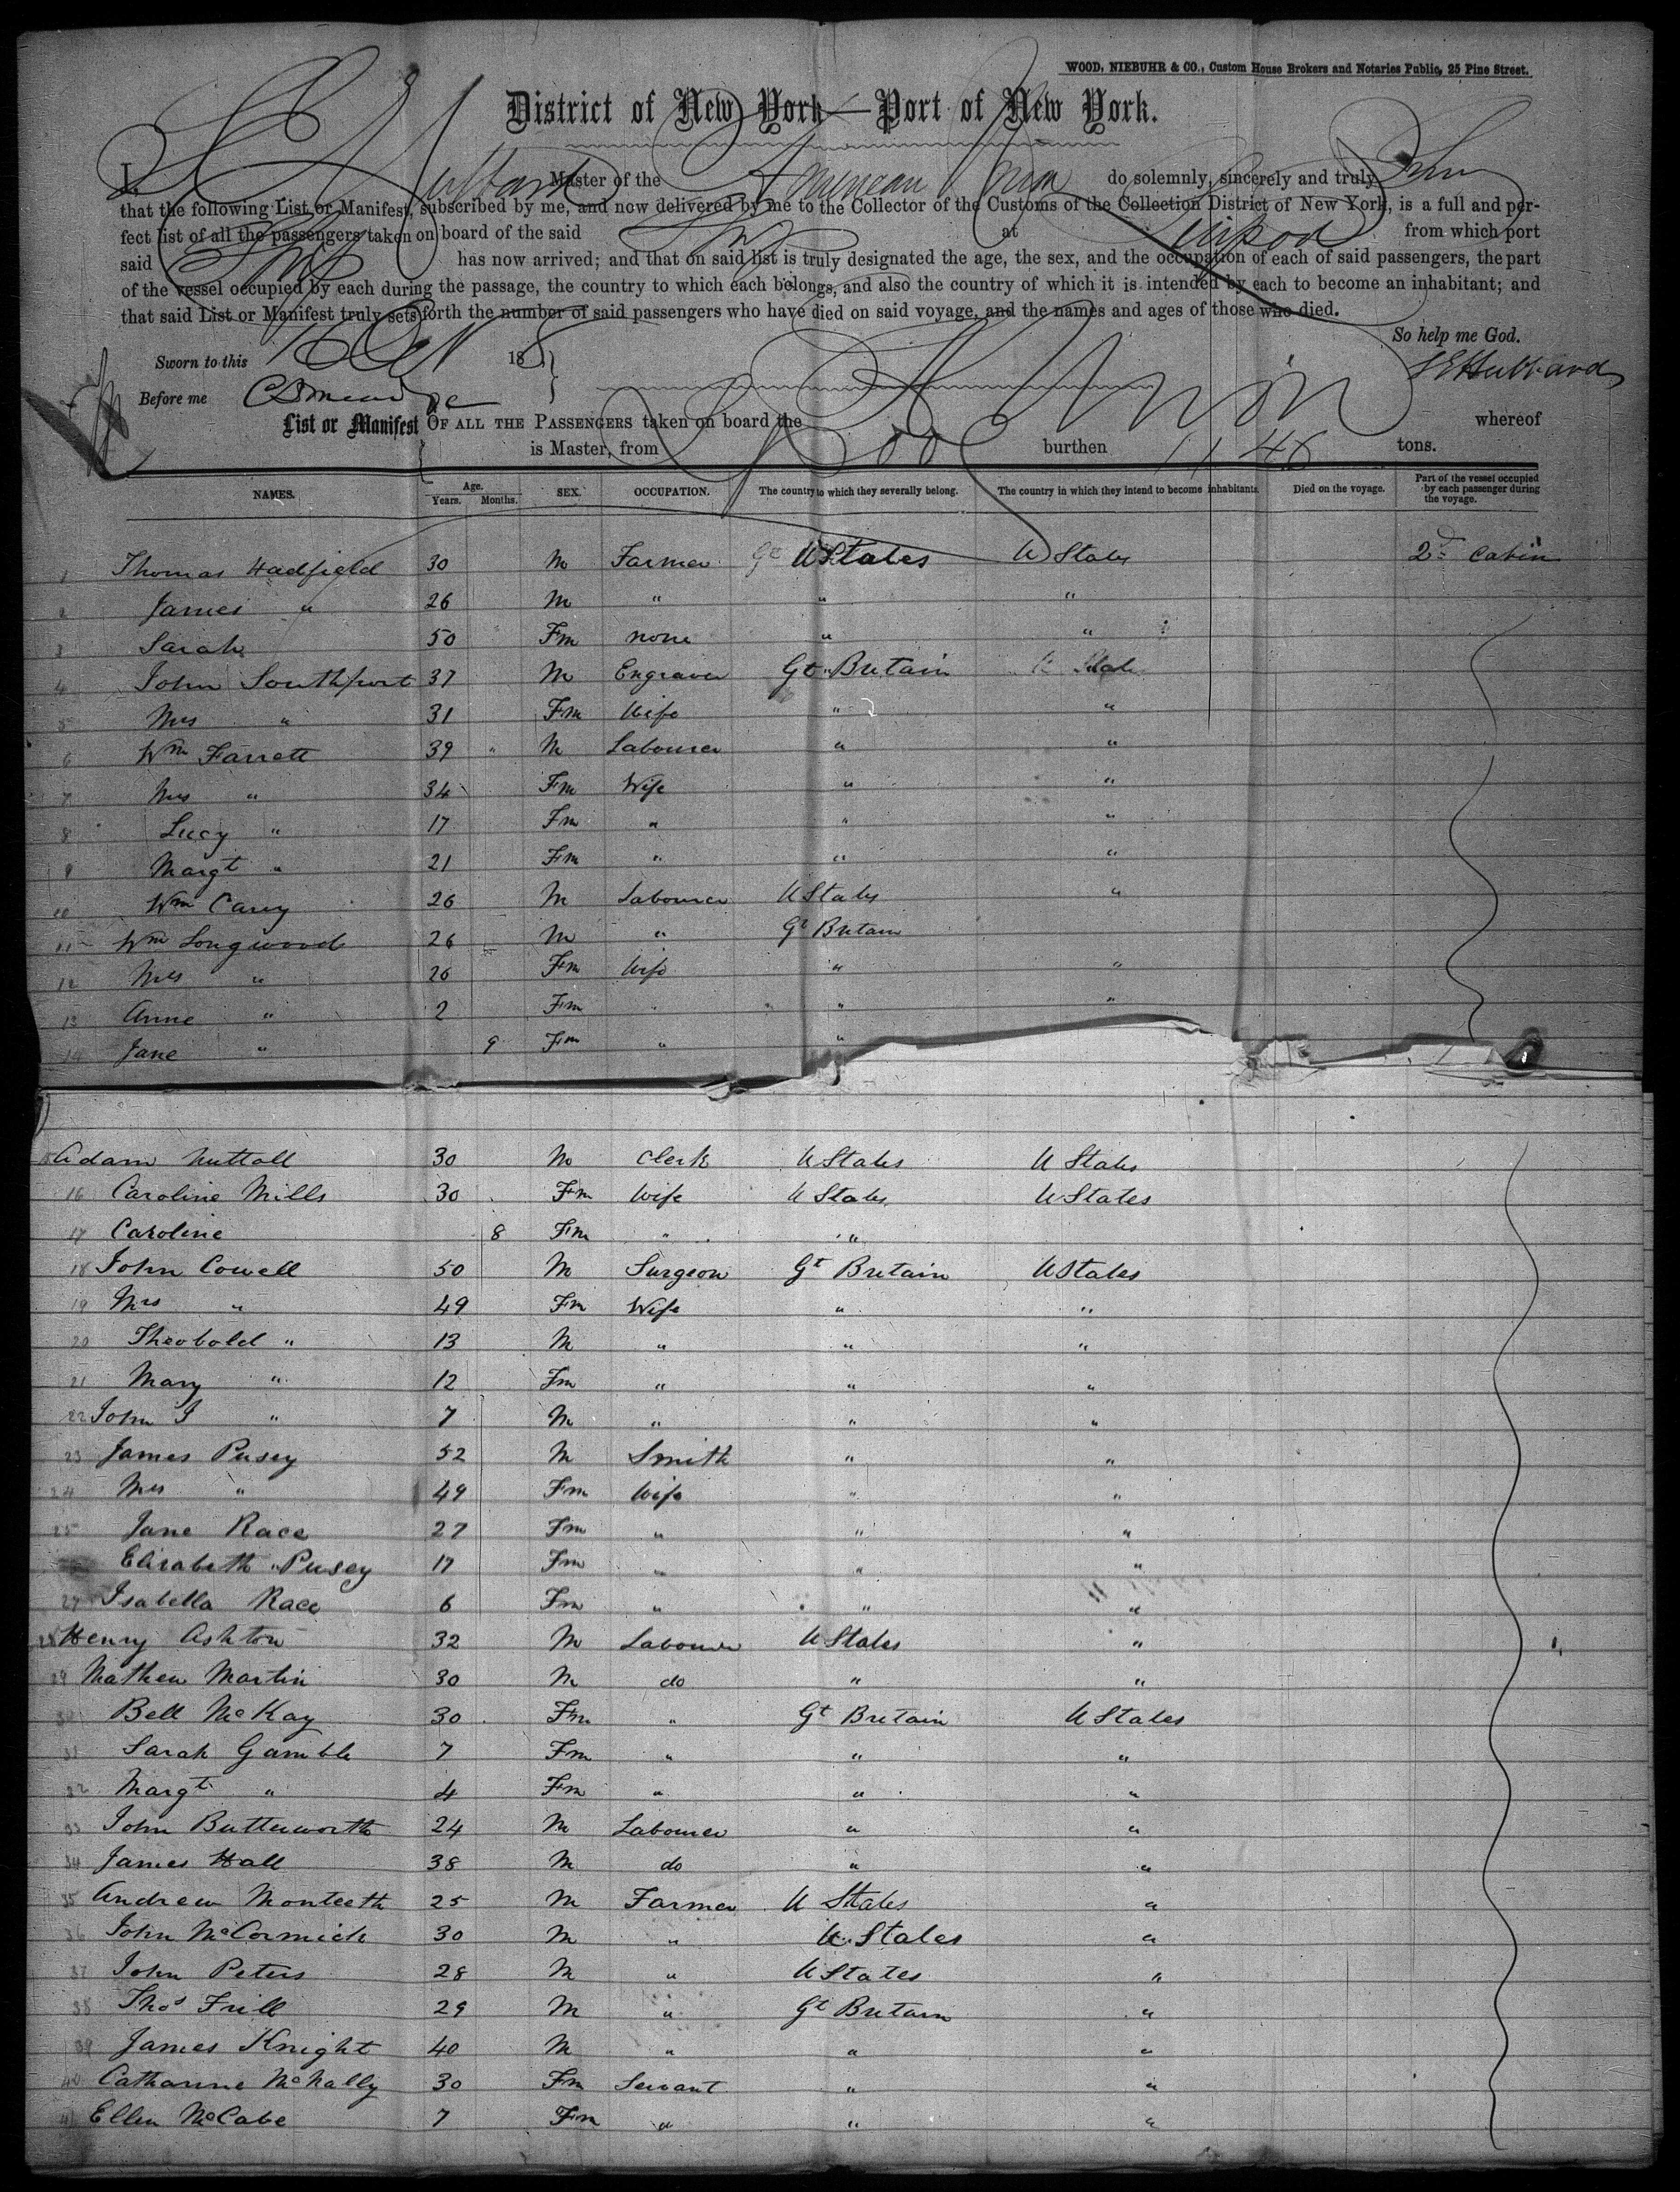 WOOD, NIEBUHR & CO., Custom House Brokers and Notaries Public, 25 Pine Street.
District of New York—Port of New York.
I, Master of the American do solemnly, sincerely and truly
that the following List or Manifest, subscribed by me, and now delivered by me to the Collector of the Customs of the Collection District of New York, is a full and per-
fect list of all the passengers taken on board of the said Ship at from which port
said Ship has now arrived; and that on said list is truly designated the age, the sex, and the occupation of each of said passengers, the part
of the vessel occupied by each during the passage, the country to which each belongs, and also the country of which it is intended by each to become an inhabitant; and
that said List or Manifest truly sets forth the number of said passengers who have died on said voyage, and the names and ages of those who died.
So help me God.
Sworn to this 16 Oct 18
S E Hubbard
Before me
List or Manifest OF ALL THE PASSENGERS taken on board the whereof
is Master, from burthen 1146 tons.
NAMES. Age. Years. Months. SEX. OCCUPATION. The country to which they severally belong. The country in which they intend to become inhabitants. Died on the voyage. Part of the vessel occupied by each passenger during the voyage.
1 Thomas Hadfield 30 M Farmer U States U States 2d Cabin
2 James " 26 M " " "
3 Sarah 50 Fm none " "
4 John Southport 37 M Engraver Gt Britain U State
5 Mrs " 31 Fm Wife " "
6 Wm Farrett 39 " M Labourer " "
7 Mrs " 34 Fm Wife " "
8 Lucy " 17 Fm " " "
9 Margt " 21 Fm " " "
10 Wm Carey 26 M Labourer U States "
11 Wm Longwood 26 M " Gt Britain
12 Mrs " 26 Fm Wife " "
13 Anne " 2 Fm " " "
14 Jane " 9 Fm " "
15 Adam Nuttall 30 M Clerk U States U States
16 Caroline Mills 30 Fm Wife U States U States
17 Caroline 8 Fm " "
18 John Cowell 50 M Surgeon Gt Britain U States
19 Mrs " 49 Fm Wife " "
20 Theobold " 13 M " " "
21 Mary " 12 Fm " " "
22 John J " 7 M " " "
23 James Pusey 52 M Smith " "
24 Mrs " 49 Fm Wife " "
25 Jane Race 27 Fm " " "
Elisabeth Pusey 17 Fm " " "
27 Isabella Race 6 Fm " " "
28 Henry Ashton 32 M Labourer U States "
29 Mathew Martin 30 M do " "
30 Bell McKay 30 Fm " Gt Britain U States
31 Sarah Gamble 7 Fm " " "
32 Margt " 4 Fm " " "
33 John Butterworth 24 M Labourer " "
34 James Hall 38 M do " "
35 Andrew Monteeth 25 M Farmer U States "
36 John McCormick 30 M " U States "
37 John Peters 28 M " U States "
38 Thos Frill 29 M " Gt Britain "
39 James Knight 40 M " " "
40 Catharine McNally 30 Fm Servant " "
41 Ellen McCabe 7 Fm " " "